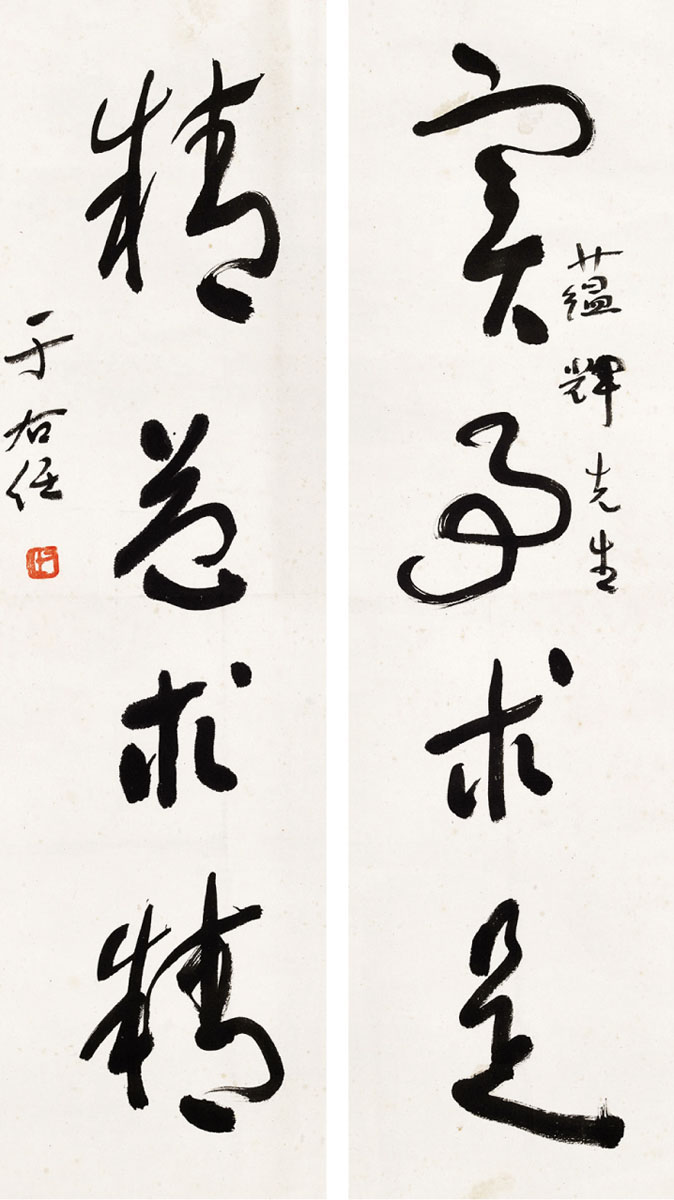 實事求是
蘊輝先生
精益求精
于右任